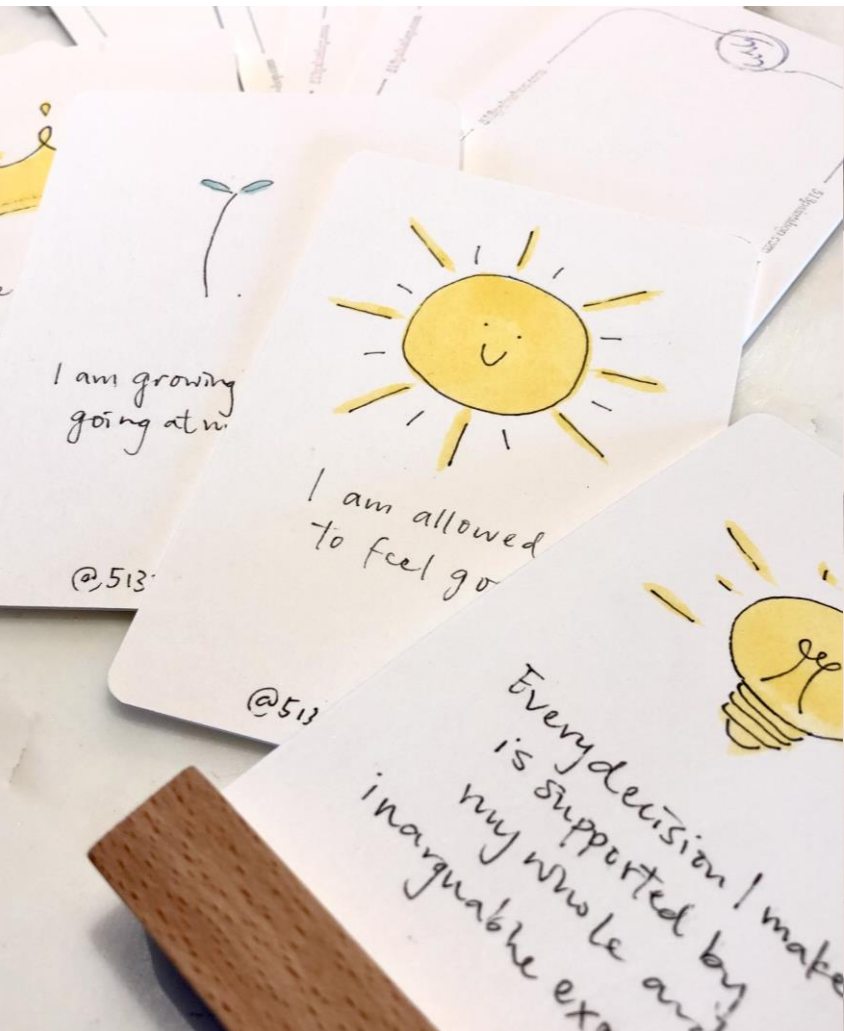 I am growing
going at
@513
I am allowed
to feel
@513
Every decision I make
is supported by
my whole and
inarguable